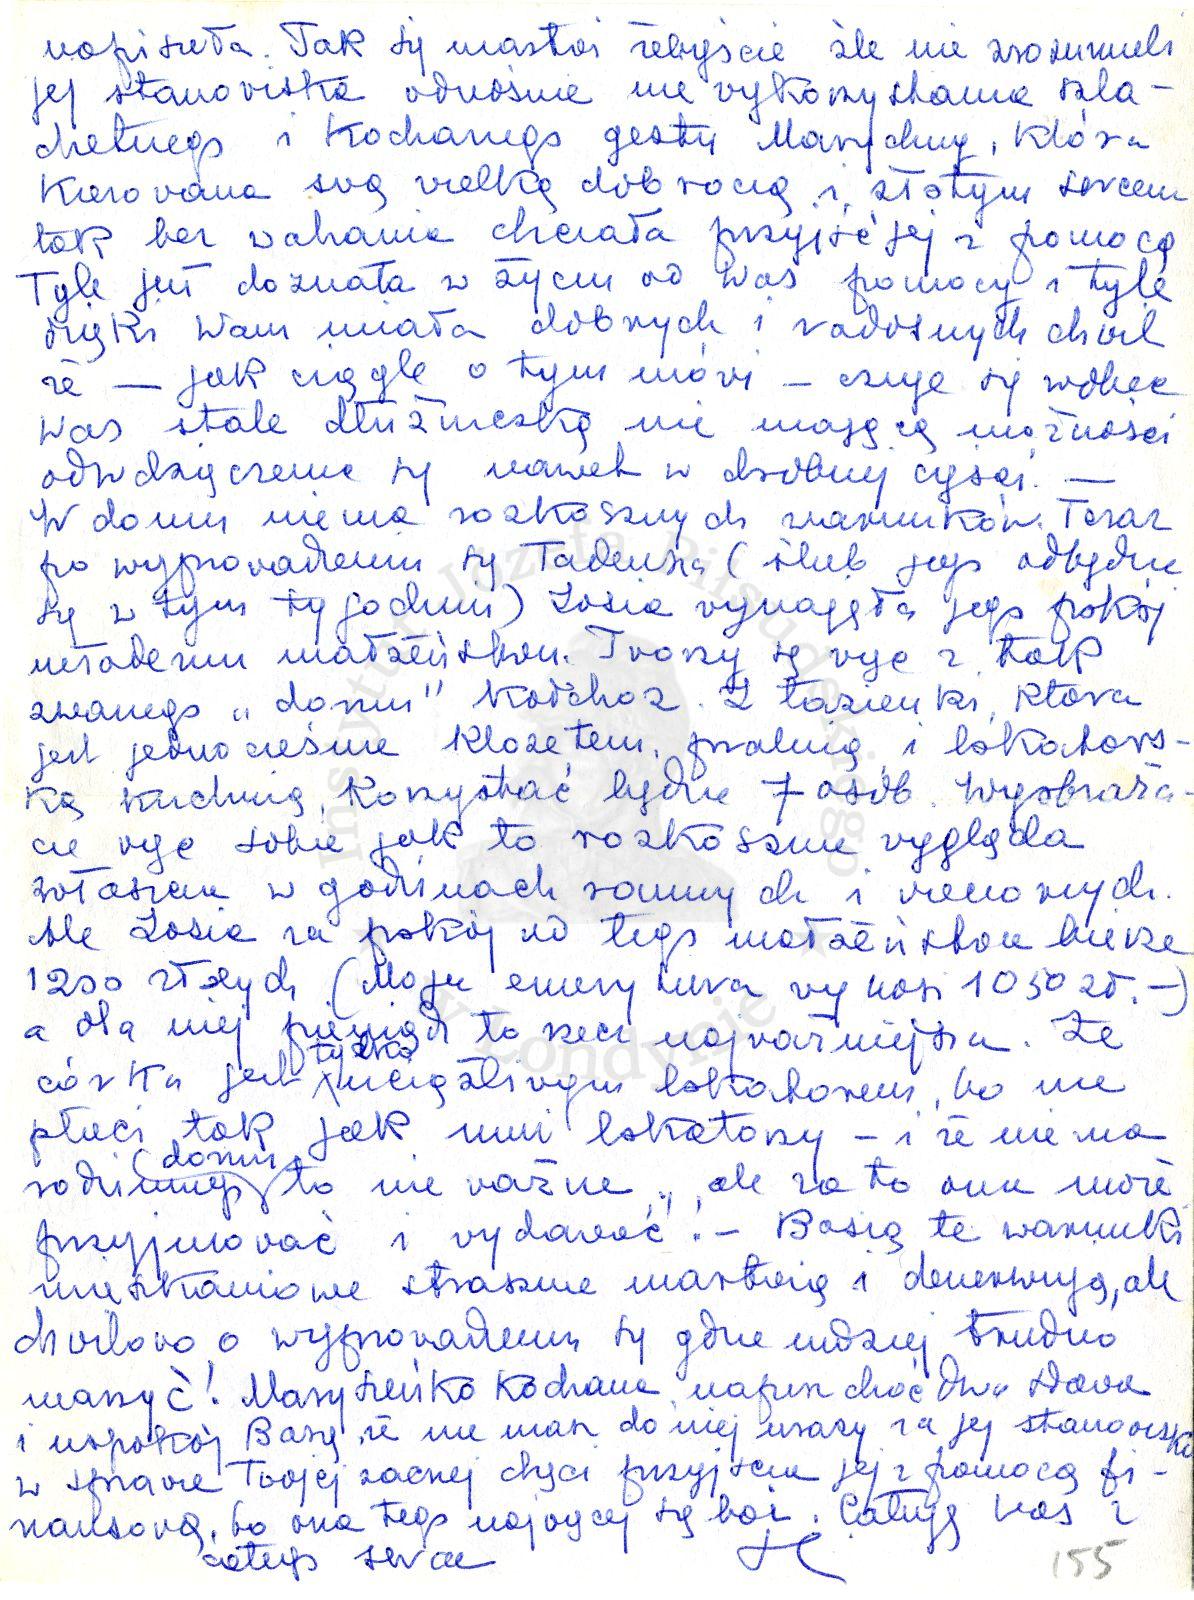 napisała. Tak się martwi żebyście źle nie zrozumieli
jej stanowiska odnośnie nie wykorzystania szla-
chetnego i kochanego gestu Marychny, która
kierowana swą wielką dobrocią i złotym sercem
tak bez wahania chciała przyjść jej z pomocą
Tyle już doznała w życiu od Was pomocy i tyle
dzięki Wam miała dobrych i radosnych chwil
że — jak ciągle o tym mówi — czuje się wobec
Was stale dłużniczką nie mającą możności
odwdzięczenia się nawet w drobnej części. —
W domu niema rozkosznych warunków. Teraz
po wyprowadzeniu się Tadeusza (ślub jego odbędzie
się w tym tygodniu) Zosia wynajęła jego pokój
młodemu małżeństwu. Tworzy się więc z tak
zwanego „domu" kołchoz. Z łazienki, która
jest jednocześnie klozetem, pralnią i lokators-
ką kuchnią, korzystać będzie 7 osób. Wyobraża-
cie więc sobie jak to rozkosznie wygląda
zwłaszcza w godzinach rannych i wieczornych.
Ale Zosia za pokój od tego małżeństwa bierze
1200 złotych (Moja emerytura wynosi 1050 zł. —)
a dla niej pieniądz to rzecz najważniejsza. Że
córka jest tylko uciążliwym lokatorem, bo nie
płaci tak jak inni lokatorzy — i że niema
rodzinnego (domu) to nie ważne, „ale za to ona może
przyjmować i wydawać"! — Basię te warunki
mieszkaniowe strasznie martwią i denerwują, ale
chwilowo o wyprowadzeniu się gdzie indziej trudno
marzyć! Marysieńko kochana napisz choć dwa słowa
i uspokój Basię, że nie masz do niej urazy za jej stanowisko
w sprawie Twojej zacnej chęci przyjścia jej z pomocą fi-
nansową, bo ona tego najwięcej się boi. Całuję Was z
całego serca
155
Instytut Józefa Piłsudskiego
w Londynie